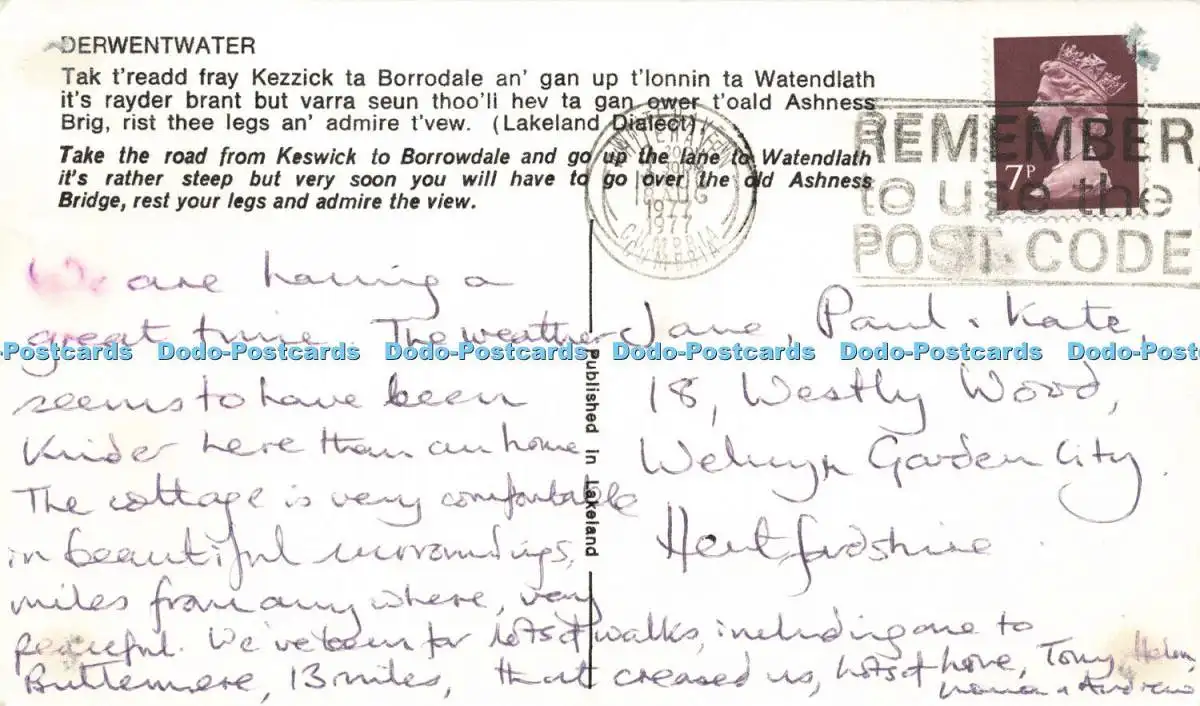 DERWENTWATER
Tak t'readd fray Kezzick ta Borrodale an' gan up t'lonnin ta Watendlath
it's rayder brant but varra seun thoo'll hev ta gan ower t'oald Ashness
Brig, rist thee legs an' admire t'vew. (Lakeland Dialect)
Take the road from Keswick to Borrowdale and go up the lane to Watendlath
it's rather steep but very soon you will have to go over the old Ashness
Bridge, rest your legs and admire the view.
1977
1977
CUMBRIA
REMEMBER
to use the
POST CODE
7P
We are having a
great time. The weather
seems to have been
kinder here than at home
The cottage is very comfortable
in beautiful surroundings,
miles from anywhere, very
peaceful. We've been for lots of walks, including one to
Buttermere, 13 miles, that creased us, lots of love, Tony, Helen,
& Andrew
Published in Lakeland
Jane, Paul & Kate,
18, Westly Wood,
Welwyn Garden City.
Hertfordshire.
Dodo-Postcards Dodo-Postcards Dodo-Postcards Dodo-Postcards Dodo-Postcards Dodo-Postcards